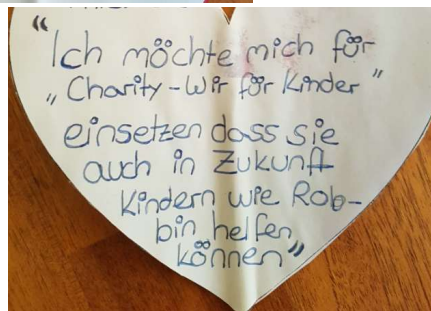 “
Ich möchte mich für
„Charity-Wir für Kinder”
einsetzen dass sie
auch in Zukunft
Kindern wie Rob-
bin helfen
können”